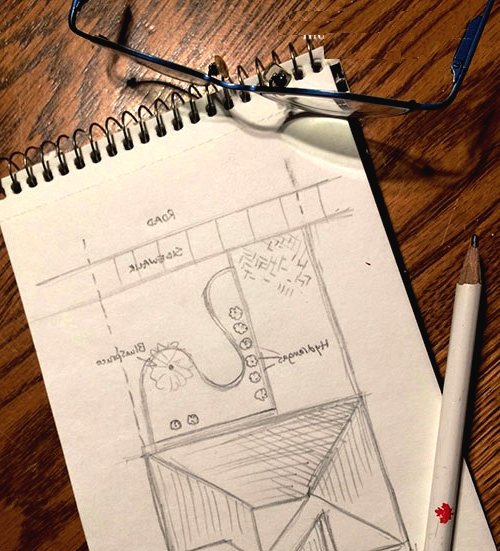 ROAD
SIDEWALK
Bluespruce
Hydrangas